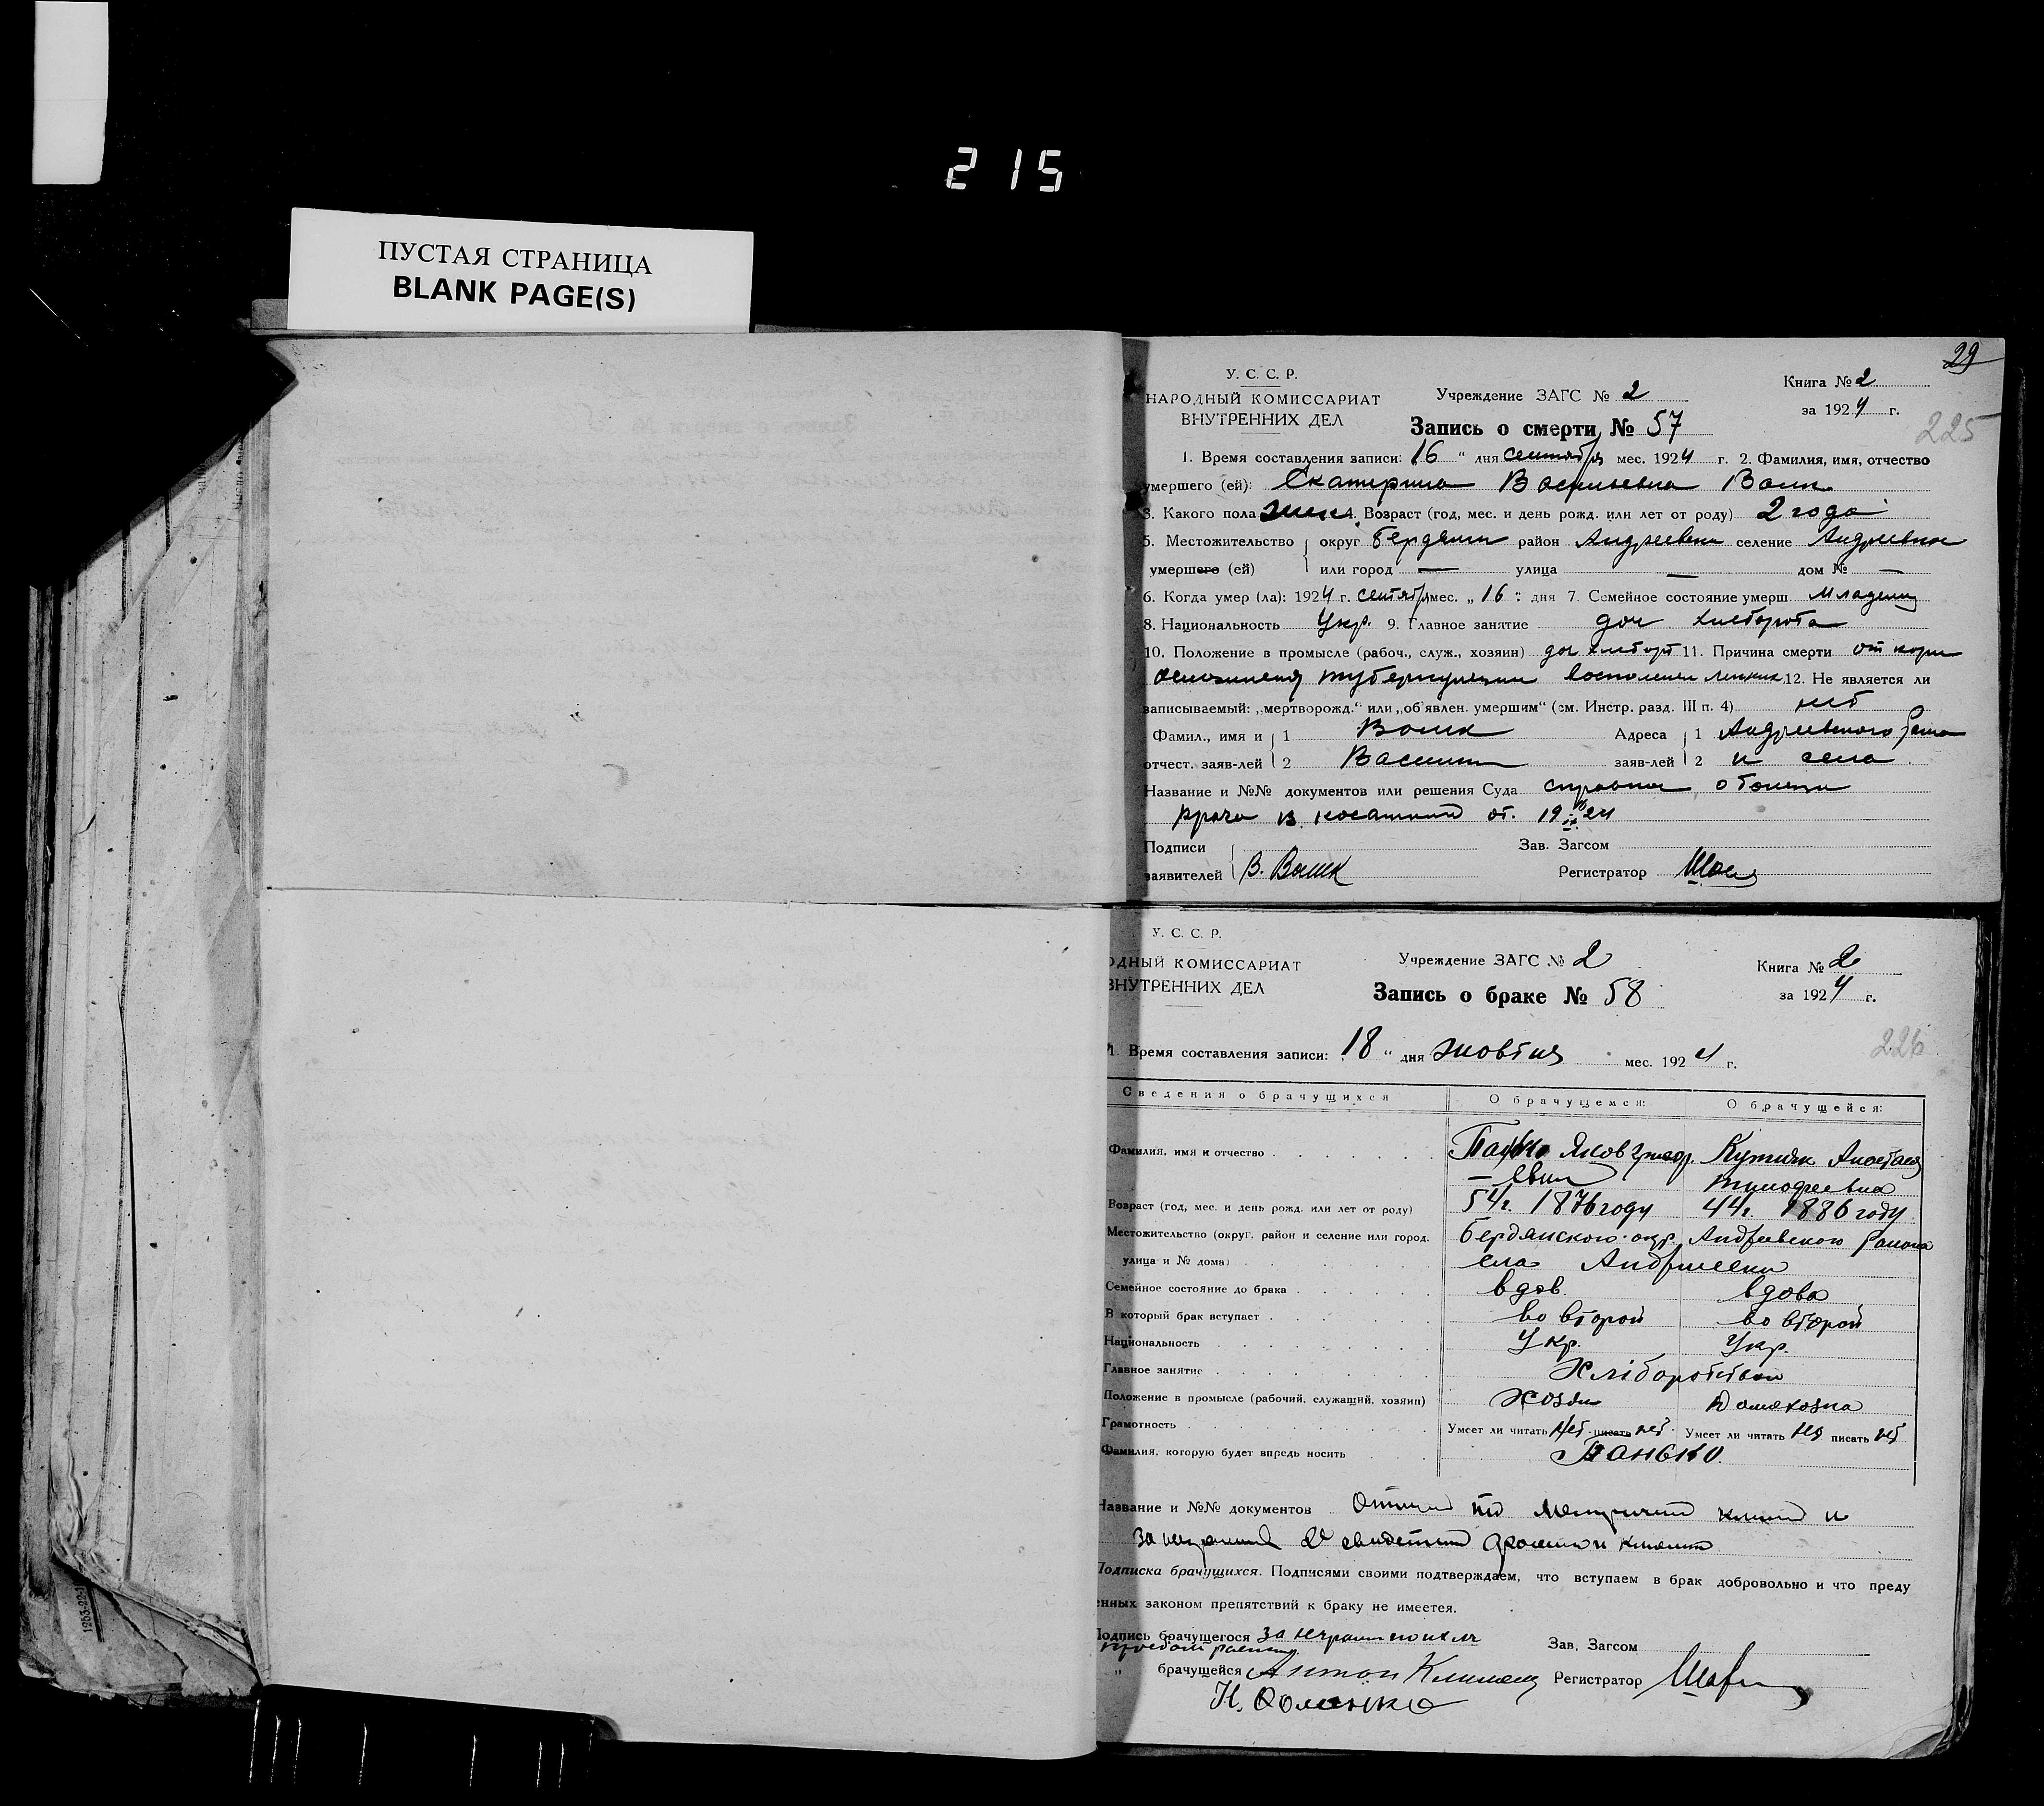 215
ПУСТАЯ СТРАНИЦА
BLANK PAGE(S)
29
У. С. С. Р.
НАРОДНЫЙ КОМИССАРИАТ
ВНУТРЕННИХ ДЕЛ
Учреждение ЗАГС № 2
Книга № 2
за 1924 г.
Запись о смерти № 57
225
1. Время составления записи: 16 " дня сентября мес. 1924 г. 2. Фамилия, имя, отчество
умершего (ей): Екатерина Васильевна
3. Какого пола жен 4. Возраст (год, мес. и день рожд. или лет от роду) 2 года
5. Местожительство округ Бердянш район Андреевки селение Андреевка
умершего (ей) или город — улица — дом № —
6. Когда умер (ла): 1924 г. сентября мес. „ 16 " дня 7. Семейное состояние умерш. Младенец
8. Национальность Укр. 9. Главное занятие доч хлебороба
10. Положение в промысле (рабоч., служ., хозяин) доч хлебороб 11. Причина смерти от кори
12. Не является ли
записываемый: „мертворожд." или „об'явлен. умершим" (см. Инстр. разд. III п. 4) нет
Фамил., имя и 1 Адреса 1 Андреевского района
отчест. заяв-лей 2 Василий заяв-лей 2 и села
Название и №№ документов или решения Суда справка
врача от. 19
Подписи Зав. Загсом
заявителей В. Регистратор
У. С. С. Р.
ОДНЫЙ КОМИССАРИАТ
ВНУТРЕННИХ ДЕЛ
Учреждение ЗАГС № 2
Книга № 2
за 1924 г.
Запись о браке № 58
226
1. Время составления записи: 18 " дня жовтня мес. 1924 г.
Сведения о брачущихся О брачущемся: О брачущейся:
Фамилия, имя и отчество Яков Григор Анастасия
— евич Тимофеевна
Возраст (год, мес. и день рожд. или лет от роду) 54г. 1876 году 44г. 1886 году
Местожительство (округ. район и селение или город, Бердянского окр. Андреевского района
улица и № дома) села Андреевки
Семейное состояние до брака вдов. вдова
В который брак вступает во второй во второй
Национальность Укр. Укр.
Главное занятие Хліборобством
Положение в промысле (рабочий, служащий, хозяин) хозяин Домохозка
Грамотность Умеет ли читать нет писать нет Умеет ли читать нет писать нет
Фамилия, которую будет впредь носить Панько.
Название и №№ документов
Подписка брачущихся. Подписями своими подтверждаем, что вступаем в брак добровольно и что преду
енных законом препятствий к браку не имеется.
Подпись брачущегося за Зав. Загсом
„ брачущейся Антон Регистратор
1253-22-1